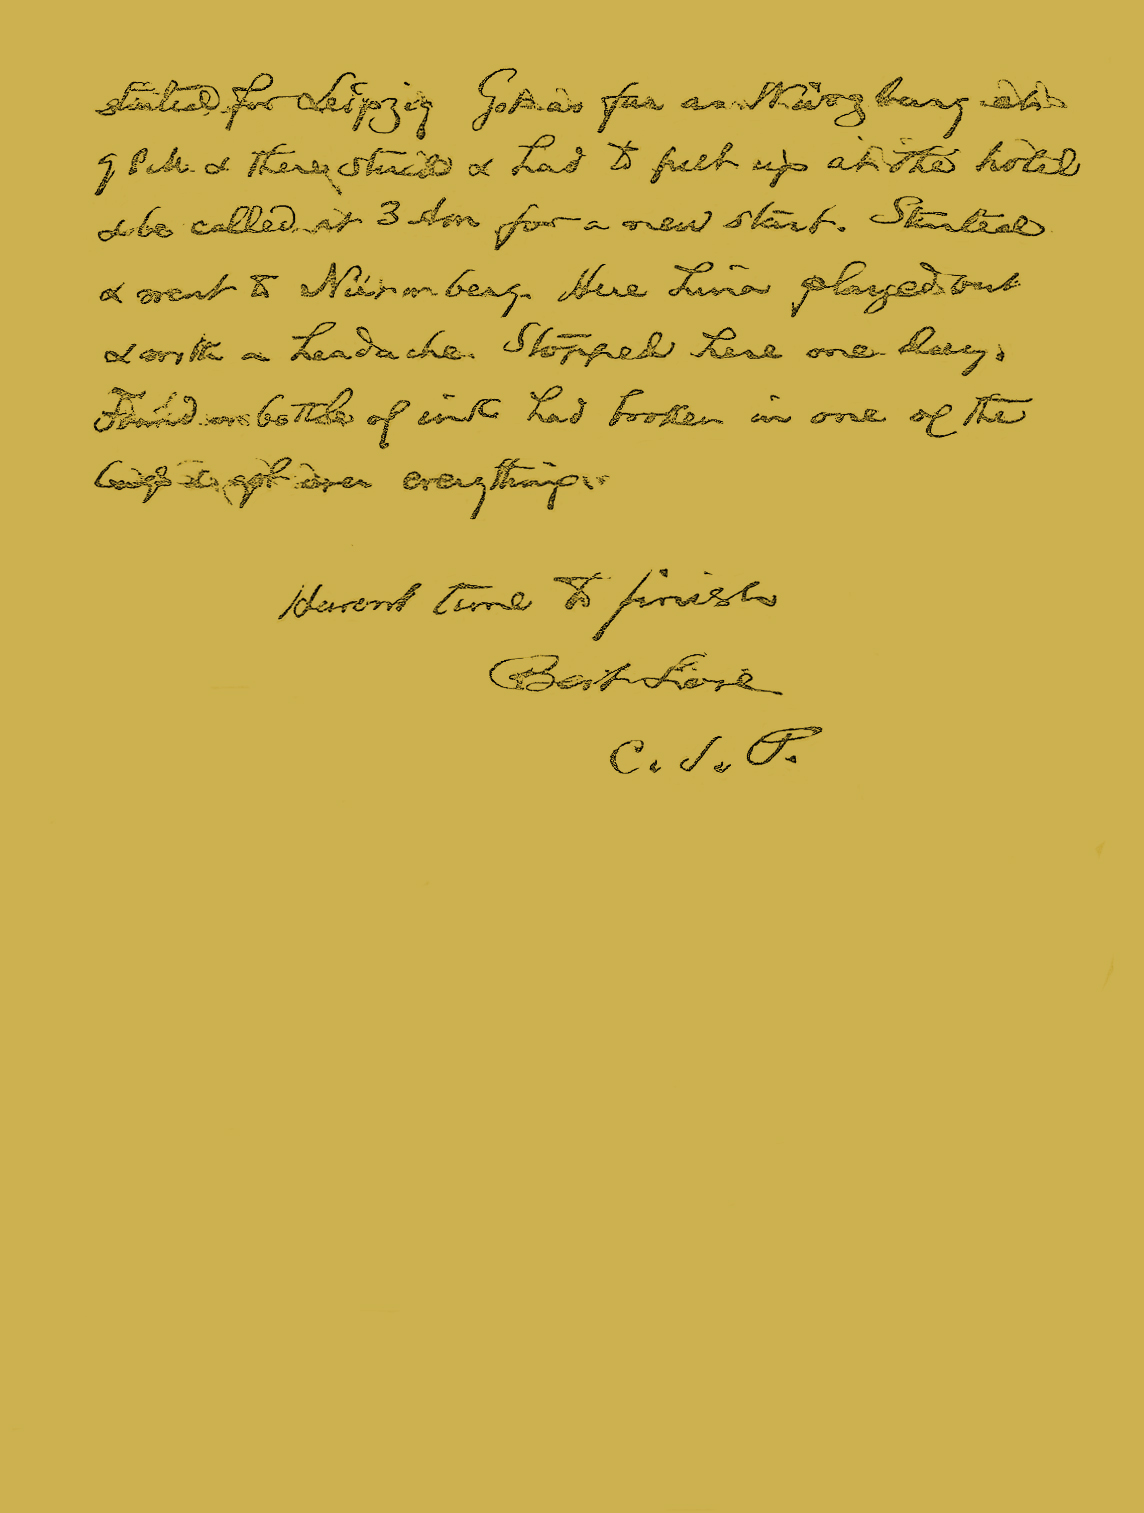 started for Leipzig Got as far as Würzburg at
9 P.M. & there stuck & had to put up at the hotel
& be called at 3 Am for a new start. Started
& went to Nürnberg. Here Lina played out
& with a headache. Stopped here one day.
Found a bottle of ink had broken in one of the
bags & got over everything.
Havent time to finish
Best Love
C. J. P.